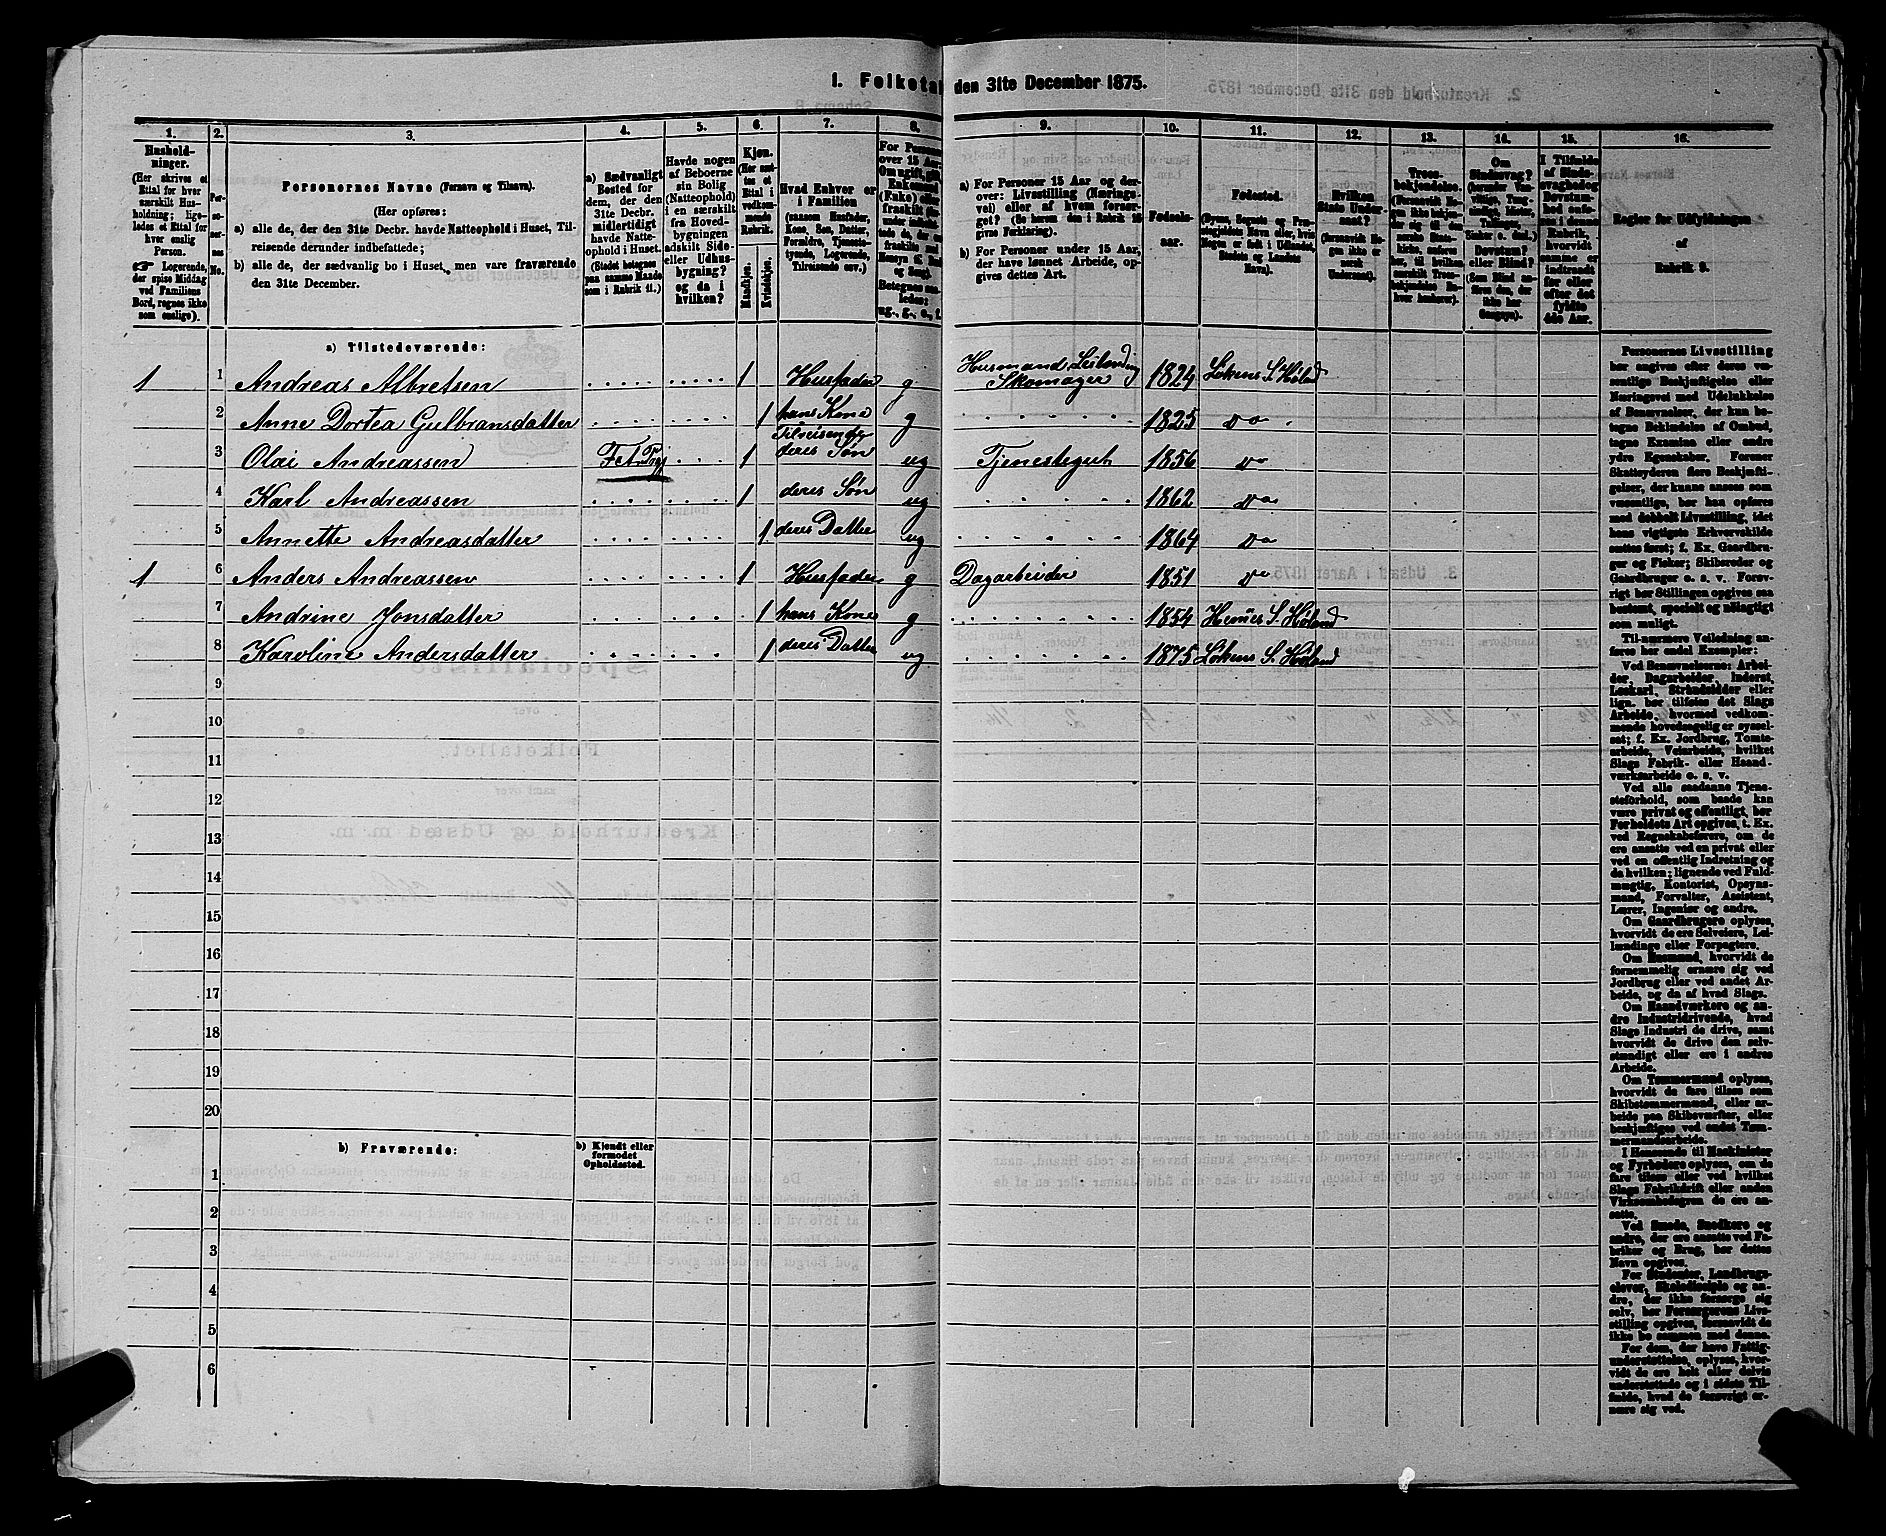 1. Folketal den 31te December 1875.
1. 2. 3. 4. 5. 6. 7. 8. 9. 10. 11. 12. 13. 14. 15. 16.
Husholdninger.
(Her skrives et
Ettal for hver
særskilt Husholdning;
ligeledes et Ettal for
hver enslig
Person.
Logerende,
der spise Middag
ved Familiens
Bord, regnes ikke
som enslige).
Personernes No.
Personernes Navne (Fornavn og Tilnavn).
(Her opføres:
a) alle de, der den 31te Decbr. havde Natteophold i Huset, Tilreisende
derunder indbefattede;
b) alle de, der sædvanlig bo i Huset, men vare fraværende
den 31te December.
a) Sædvanligt
Bosted for
dem, der den
31te Decbr.
midlertidigt
havde Natteophold
i Huset.
(Stedet betegnes
paa samme Maade
som i Rubrik 11.)
Havde nogen
af Beboerne
sin Bolig
(Natteophold)
i en særskilt
fra Hovedbygningen
adskilt Side-
eller Udhusbygning?
og da i
hvilken?
Kjøn.
(Her sættes
et
Ettal i
vedkommende
Rubrik.
Mandkjøn.
Kvindekjøn.
Hvad Enhver er
i Familien
(saasom Husfader,
Kone, Søn, Datter,
Forældre, Tjenestetyende,
Logerende,
Tilreisende osv.)
For Personer
over 15 Aar:
Om ugift, gift,
Enkemand
(Enke) eller
fraskilt
Betegnes saaledes:
ug., g., e., f.
a) For Personer 15 Aar og derover:
Livsstilling (Næringsvei)
eller af hvem forsørget?
(Se herom den i Rubrik 16
givne Forklaring).
b) For Personer under 15 Aar,
der have lønnet Arbeide, opgives
dettes Art.
Fødselsaar.
Fødested.
(Byens, Sognets og Præstegjeldets
Navn eller, hvis
Nogen er født i Udlandet,
Stedets og Landets
Navn).
Hvilken
Stats Undersaat?
(forsaavidt Nogen
ikke er
norsk
Undersaat).
Troesbekjendelse.
(Forsaavidt Nogen
ikke bekjender
sig til den
norske Statskirke,
anføres
her, til hvilken
særskilt Troesbekjendelse
Enhver
henhører).
Om
Sindssvag?
Døvstum?
eller Blind?
(Som Blind anføres
den, der
ikke har
Gangsyn).
I Tilfælde
af Sindssvaghed
og
Døvstumhed
anføres
i denne
Rubrik,
hvorvidt
samme er
indtraadt
før eller
efter det
fyldte
4de Aar.
Regler for Udfyldningen
af
Rubrik 9.
a) Tilstedeværende:
1 1 Andreas Albretsen 1 Husfader g Husmand Leilænding Skomager 1824 Løkens S. Høland
2 Anne Dortea Gulbransdatter 1 hans Kone g 1825 do
3 Olai Andreassen Fet Prgj 1 Tilreisende deres Søn ug Tjenestegut 1856 do
4 Karl Andreassen 1 deres Søn ug 1862 do
5 Annette Andreasdatter 1 deres Datter ug 1864 do
1 6 Anders Andreassen 1 Husfader g Dagarbeider 1851 do
7 Andrine Jonsdatter 1 hans Kone g 1854 Hemnes S. Høland
8 Karoline Andersdatter 1 deres Datter ug 1875 Løkens S. Høland
9
10
11
12
13
14
15
16
17
18
19
20
b) Fraværende: b) Kjendt eller
formodet
Opholdssted.
1
2
3
4
5
6
Personernes Livsstilling
bør angives efter deres væsentlige
Beskjæftigelse eller
Næringsvei med Udelukkelse
af Benævnelser, der kun betegne
Beklædelse af Ombud,
tagne Examina eller andre
ydre Egenskaber. Forener
Skatteyderen flere Beskjæftigelser,
der kunne ansees som
væsentlige, bør han opføres
med dobbelt Livsstilling, idet
hans vigtigste Erhvervskilde
sættes først; f. Ex. Gaardbruger
og Fisker; Skibsreder og
Gaardbruger o. s. v. Forøvrigt
bør Stillingen opgives saa
bestemt, specielt og nøiagtigt
som muligt.
Til nærmere Veiledning anføres
her endel Exempler:
Ved Benævnelserne: Arbeider,
Dagarbeider, Inderst,
Løskarl, Strandsidder eller
lign. bør tilføies det Slags
Arbeide, hvormed vedkommende
hovedsagelig er sysselsat;
f. Ex. Jordbrug, Tomtearbeide,
Veiarbeide, hvilket
Slags Fabrik- eller Haandværksarbeide
o. s. v.
Ved alle saadanne Tjenesteforhold,
som baade kan
være privat og offentligt, bør
Forholdets Art opgives, t. Ex.
ved Regnskabsførere, om de
ere ansatte ved en privat eller
ved en offentlig Indretning og
da hvilken; lignende ved Fuldmægtig,
Kontorist, Opsynsmand,
Forvalter, Assistent,
Lærer, Ingeniør og andre.
Om Gaardbrugere oplyses,
hvorvidt de ere Selveiere, Leilændinge
eller Forpagtere.
Om Husmænd, hvorvidt de
fornemmelig ernære sig ved
Jordbrug eller ved andet Arbeide,
og da af hvad Slags.
Om Haandværkere og andre
Industridrivende, hvad
Slags Industri de drive, samt
hvorvidt de drive den selvstændigt
eller ere i andres
Arbeide.
Om Tømmermænd oplyses,
hvorvidt de fare tilsøs som
Skibstømmermænd, eller arbeide
paa Skibsværfter, eller
beskjæftiges ved andet Tømmermandsarbeide.
I Henseende til Maskinister
og Fyrbødere oplyses, om de
fare tilsøs eller ved hvilket
Slags Fabrikdrift eller anden
Virksomhed de ere ansatte.
Ved Smede, Snedkere og
andre, der ere ansatte ved Fabriker
og Brug, bør dettes
Navn opgives.
For Studenter, Landbrugselever,
Skoledisciple og andre,
der ikke forsørge sig
selv, bør Forsørgerens Livsstilling
opgives, forsaavidt de
ikke bo sammen med denne.
For dem, der have Fattigunderstøttelse,
oplyses, hvorvidt
de ere helt eller delvis
understøttede og i sidste Tilfælde,
hvad de forøvrigt ernære
sig ved.